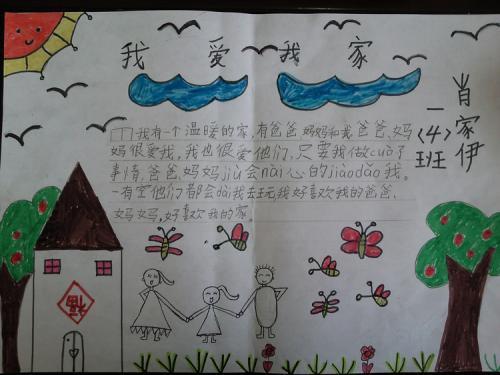 我爱我家
一〈4〉班
肖家伊
我有一个温暖的家,有爸爸,妈妈和我,爸爸、妈
妈很爱我,我也很爱他们,只要我做cuò了
事情,爸爸,妈妈jiù会nài心的jiāodǎo我。
一有空他们都会dài我去玩,我好喜欢我的爸爸、
妈妈,好喜欢我的家。
福